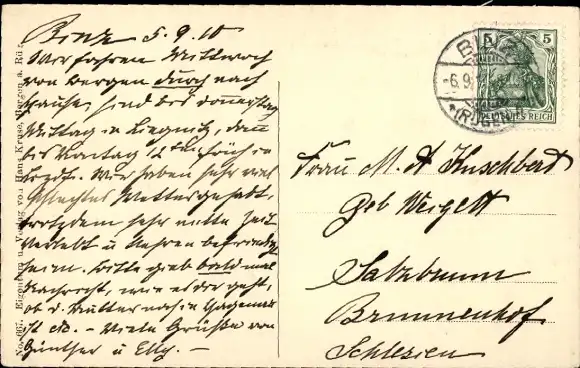 Binz 5.9.10
Wir fahren Mittwoch
von Bergen durch nach
Hause, sind bis Donnerstag
Mittag in Liegnitz, dann
bis Montag 12ten früh in
Wir haben sehr viel
schlechtes Wetter gehabt,
trotzdem sehr nette Zeit
verlebt u kehren befriedigt
heim. Bitte gieb bald mal
Nachricht, wie es Dir geht,
ob d. Mutter noch in
ist etc. – Viele Grüße von
Günther u Elly. –
Eigentum u. Verlag von Hans Kruse, Bergen a. Rüg.
BINZ
6.9.
(RÜGEN)
5 5
DEUTSCHES REICH
Frau M. A Kuschbert
geb Weigelt
Salzbrunn
Brunnenhof.
Schlesien